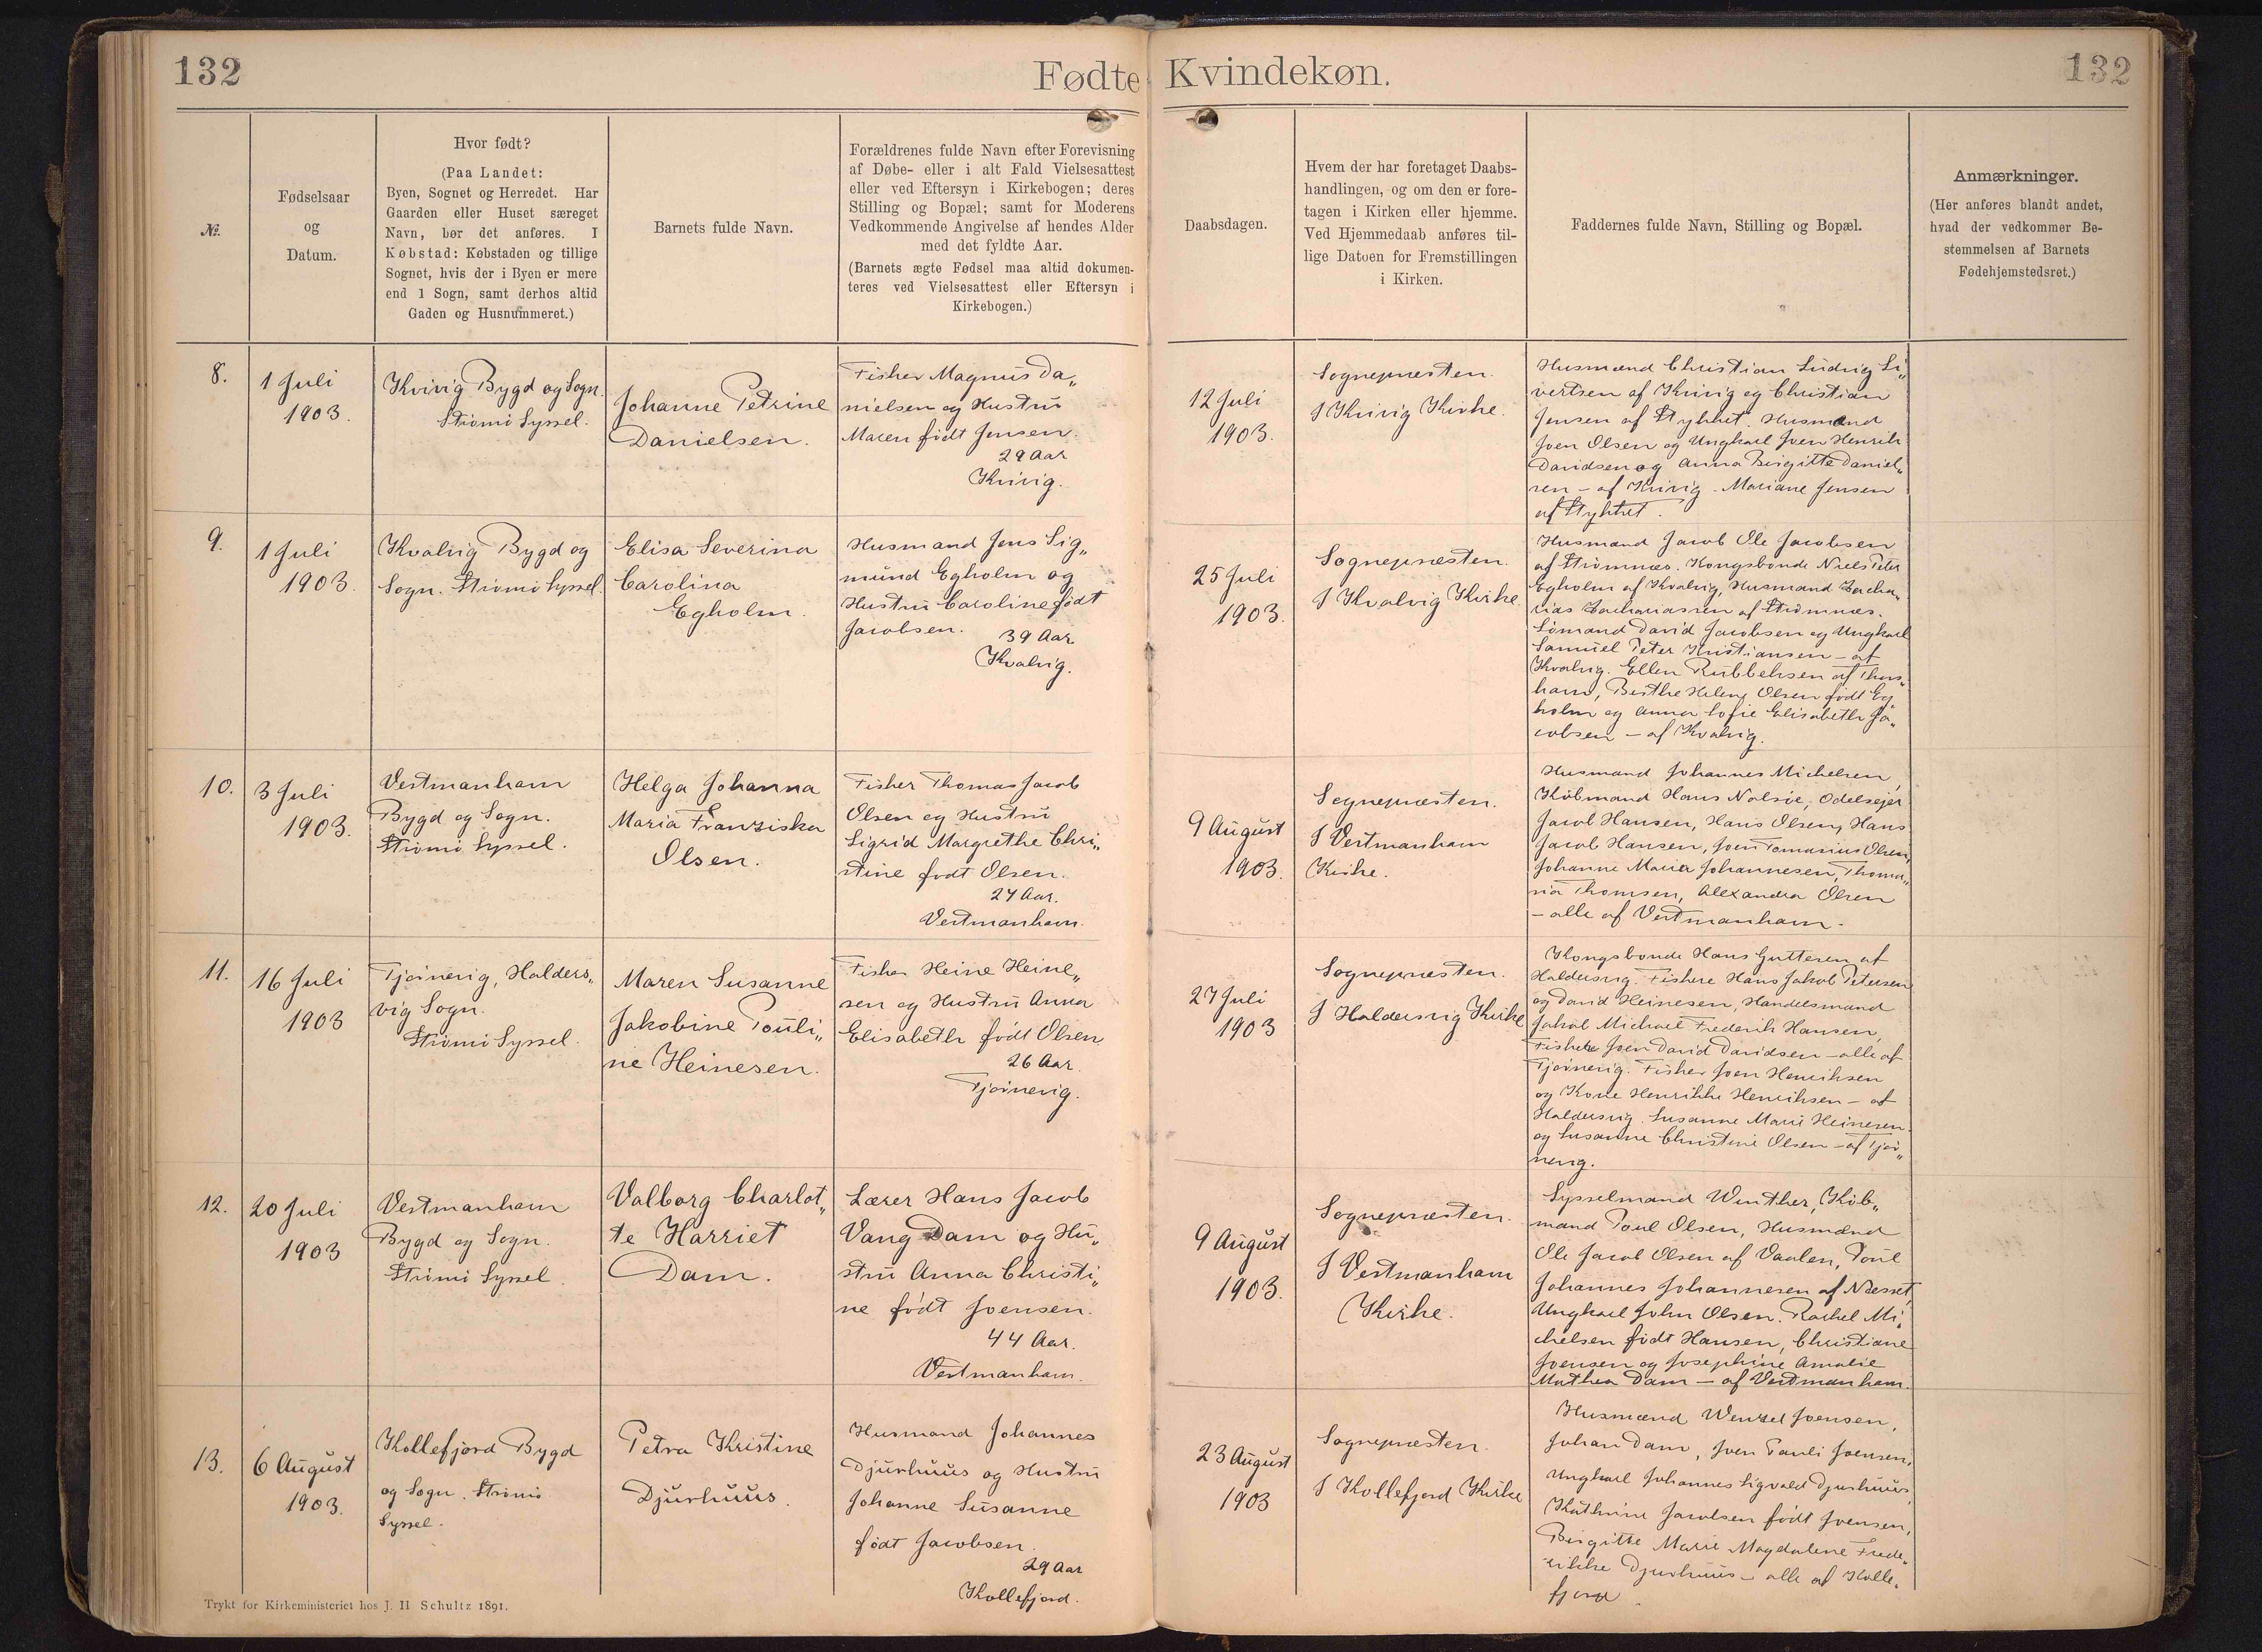 132
Fødte Kvindekøn.
132
№.
Fødselsaar
og
Datum.
Hvor født?
(Paa Landet:
Byen, Sognet og Herredet. Har
Gaarden eller Huset særeget
Navn, bør det anføres. I
Købstad: Købstaden og tillige
Sognet, hvis der i Byen er mere
end 1 Sogn, samt derhos altid
Gaden og Husnummeret.)
Barnets fulde Navn.
Forældrenes fulde Navn efter Forevisning
af Døbe- eller i alt Fald Vielsesattest
eller ved Eftersyn i Kirkebogen; deres
Stilling og Bopæl; samt for Moderens
Vedkommende Angivelse af hendes Alder
med det fyldte Aar.
(Barnets ægte Fødsel maa altid dokumen-
teres ved Vielsesattest eller Eftersyn i
Kirkebogen.)
Daabsdagen.
Hvem der har foretaget Daabs-
handlingen, og om den er fore-
tagen i Kirken eller hjemme.
Ved Hjemmedaab anføres til-
lige Datoen for Fremstillingen
i Kirken.
Faddernes fulde Navn, Stilling og Bopæl.
Anmærkninger.
(Her anføres blandt andet,
hvad der vedkommer Be-
stemmelsen af Barnets
Fødehjemstedsret.)
8.
1 Juli
1903.
Kvivig Bygd og Sogn.
Strømø Syssel.
Johanne Petrine
Danielsen.
Fisker Magnus Da„
nielsen og Hustru
Maren født Jensen.
29 Aar
Kvivig.
12 Juli
1903.
Sognepræsten.
I Kvivig Kirke.
Husmænd Christian Ludvig Si„
vertsen af Kvivig og Christian
Jensen af Stykket. Husmænd
Joen Olsen og Ungkarl Joen Henrik
Davidsen og Anna Birgitte Daniel„
sen - af Kvivig. Mariane Jensen
af Stykket.
9.
1 Juli
1903.
Kvalvig Bygd og
Sogn. Strømø Syssel.
Elisa Severina
Carolina
Egholm.
Husmand Jens Sig„
mund Egholm og
Hustru Caroline født
Jacobsen.
39 Aar
Kvalvig.
25 Juli
1903.
Sognepræsten.
I Kvalvig Kirke.
Husmænd Jacob Ole Jacobsen
af Strømnæs. Kongsbonde Niels Peter
Egholm af Kvalvig, Husmand Zacha„
rias Zachariassen af Strømnæs.
Sømand David Jacobsen og Ungkarl
Samuel Peter Kristiansen - af
Kvalvig. Ellen Rubbeksen af Thors„
havn, Birthe Helene Olsen født Eg„
holm og Anna Sofie Elisabeth Ja„
cobsen - af Kvalvig.
10.
3 Juli
1903.
Vestmanhavn
Bygd og Sogn.
Strømø Syssel.
Helga Johanna
Maria Franziska
Olsen.
Fisker Thomas Jacob
Olsen og Hustru
Sigrid Margrethe Chri„
stine født Olsen.
27 Aar.
Vestmanhavn.
9 August
1903.
Sognepræsten.
I Vestmanhavn
Kirke.
Husmand Johannes Michelsen,
Købmand Hans Nolsøe, Odelsejer
Jacob Hansen, Hans Olsen, Hans
Jacob Hansen, Joen Tomasius Olsen,
Johanne Maria Johannesen, Thoma„
sia Thomsen, Alexandra Olsen
- alle af Vestmanhavn.
11.
16 Juli
1903
Tjørnevig, Halders„
vig Sogn.
Strømø Syssel.
Maren Susanne
Jakobine Pouli„
ne Heinesen.
Fisker Heine Heine„
sen og Hustru Anna
Elisabeth født Olsen
26 Aar.
Tjørnevig.
27 Juli
1903
Sognepræsten.
I Haldersvig Kirke
Kongsbonde Hans Guttesen af
Haldersvig. Fiskere Hans Jakob Petersen
og David Heinesen, Handelsmand
Jakob Michael Frederik Hansen,
Fisker Joen David Davidsen - alle af
Tjørnevig. Fisker Joen Henriksen
og Kone Henrikke Henriksen - af
Haldersvig. Susanne Marie Heinesen
og Susanne Christine Olsen - af Tjør„
nevig.
12.
20 Juli
1903
Vestmanhavn
Bygd og Sogn.
Strømø Syssel.
Valborg Charlot„
te Harriet
Dam.
Lærer Hans Jacob
Vang Dam og Hu„
stru Anna Christi„
ne født Joensen.
44 Aar.
Vestmanhavn.
9 August
1903.
Sognepræsten.
I Vestmanhavn
Kirke.
Sysselmand Winther, Køb„
mand Poul Olsen, Husmænd
Ole Jacob Olsen af Vaalen, Poul
Johannes Johannesen af Næsset,
Ungkarl John Olsen. Rachel Mi„
chelsen født Hansen, Christiane
Joensen og Josephine Amalie
Mathea Dam - af Vestmanhavn.
13.
6 August
1903.
Kollefjord Bygd
og Sogn. Strømø
Syssel.
Petra Kristine
Djurhuus.
Husmand Johannes
Djurhuus og Hustru
Johanne Susanne
født Jacobsen.
29 Aar
Kollefjord.
23 August
1903
Sognepræsten.
I Kollefjord Kirke
Husmænd Wenzel Joensen,
Johan Dam, Joen Pauli Joensen,
Ungkarl Johannes Sigvald Djurhuus,
Kathrine Jacobsen født Joensen,
Birgitte Marie Magdalene Frede„
rikke Djurhuus - alle af Kolle„
fjord.
Trykt for Kirkeministeriet hos J. H Schultz 1891.